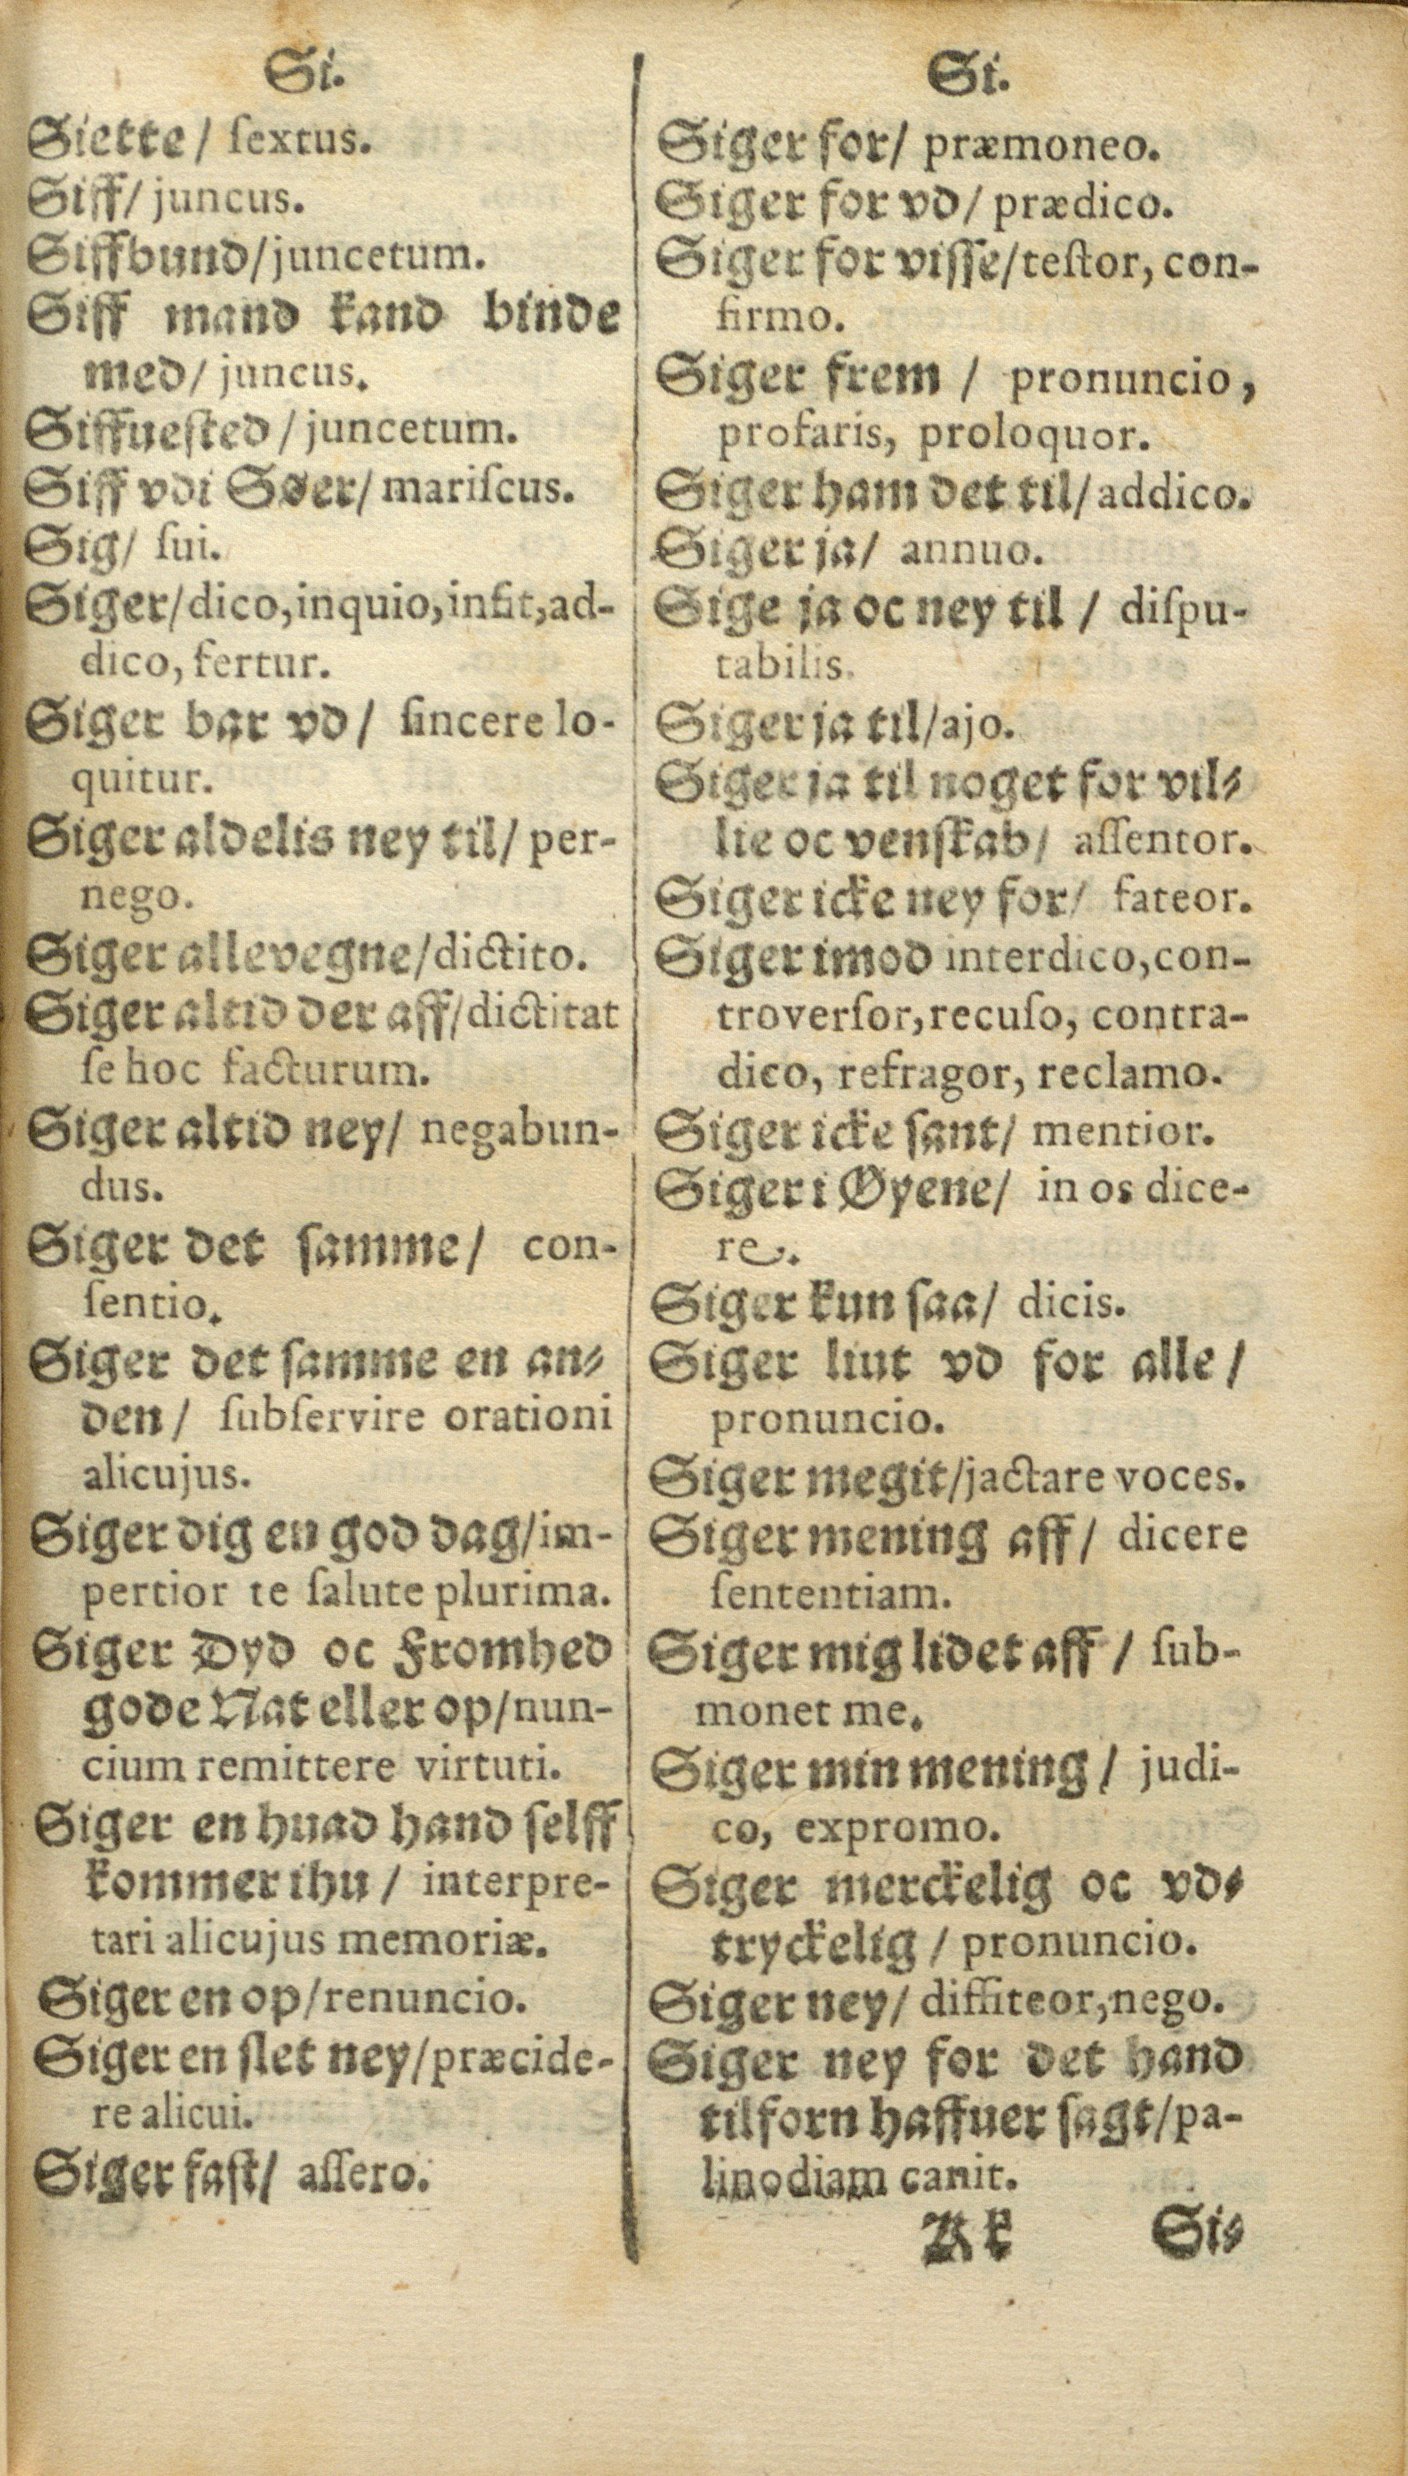 Si.
Siette/ ſextus.
Siff/ juncus.
Siffbund/juncetum.
Siff mand kand binde
med/ juncus.
Siffuested/juncetum.
Siff vdi Søer/ mariſcus.
Sig/ ſui.
Siger/dico,inquio,infit,ad-
dico, fertur.
Siger bar vd/ ſincere lo-
quitur.
Siger aldelis ney til/ per-
nego.
Siger allevegne/dictito.
Siger altid der aff/dictitat
ſe hoc facturum.
Siger altid ney/ negabun-
dus.
Siger det ſamme/ con-
ſentio.
Siger det ſamme en an-
den/ ſubſervire orationi
alicujus.
Siger dig en god dag/im-
pertior te ſalute plurima.
Siger Dyd oc Fromhed
gode Nat eller op/nun-
cium remittere virtuti.
Siger en huad hand ſelff
kommer ihu/ interpre-
tari alicujus memoriæ.
Siger en op/renuncio.
Siger en ſlet ney/præcide-
re alicui.
Siger faſt/ aſſero.
Si.
Siger for/ præmoneo.
Siger for vd/ prædico.
Siger for viſſe/teſtor, con-
firmo.
Siger frem / pronuncio,
profaris, proloquor.
Siger ham det til/addico.
Siger ja/ annuo.
Sige ja oc ney til / diſpu-
tabilis.
Siger ja til/ajo.
Siger ja til noget for vil-
lie oc venſkab/ aſſentor.
Siger icke ney for/ fateor.
Siger imod interdico,con-
troverſor,recuſo, contra-
dico, refragor, reclamo.
Siger icke ſant/ mentior.
Siger i Øyene/ in os dice-
re.
Siger kun ſaa/ dicis.
Siger liut vd for alle/
pronuncio.
Siger megit/jactare voces.
Siger mening aff/ dicere
ſententiam.
Siger mig lidet aff / ſub-
monet me.
Siger min mening / judi-
co, expromo.
Siger merckelig oc vd-
tryckelig / pronuncio.
Siger ney/ diffiteor,nego.
Siger ney for det hand
tilforn haffuer ſagt/pa-
linodiam canit.
Kk Si-